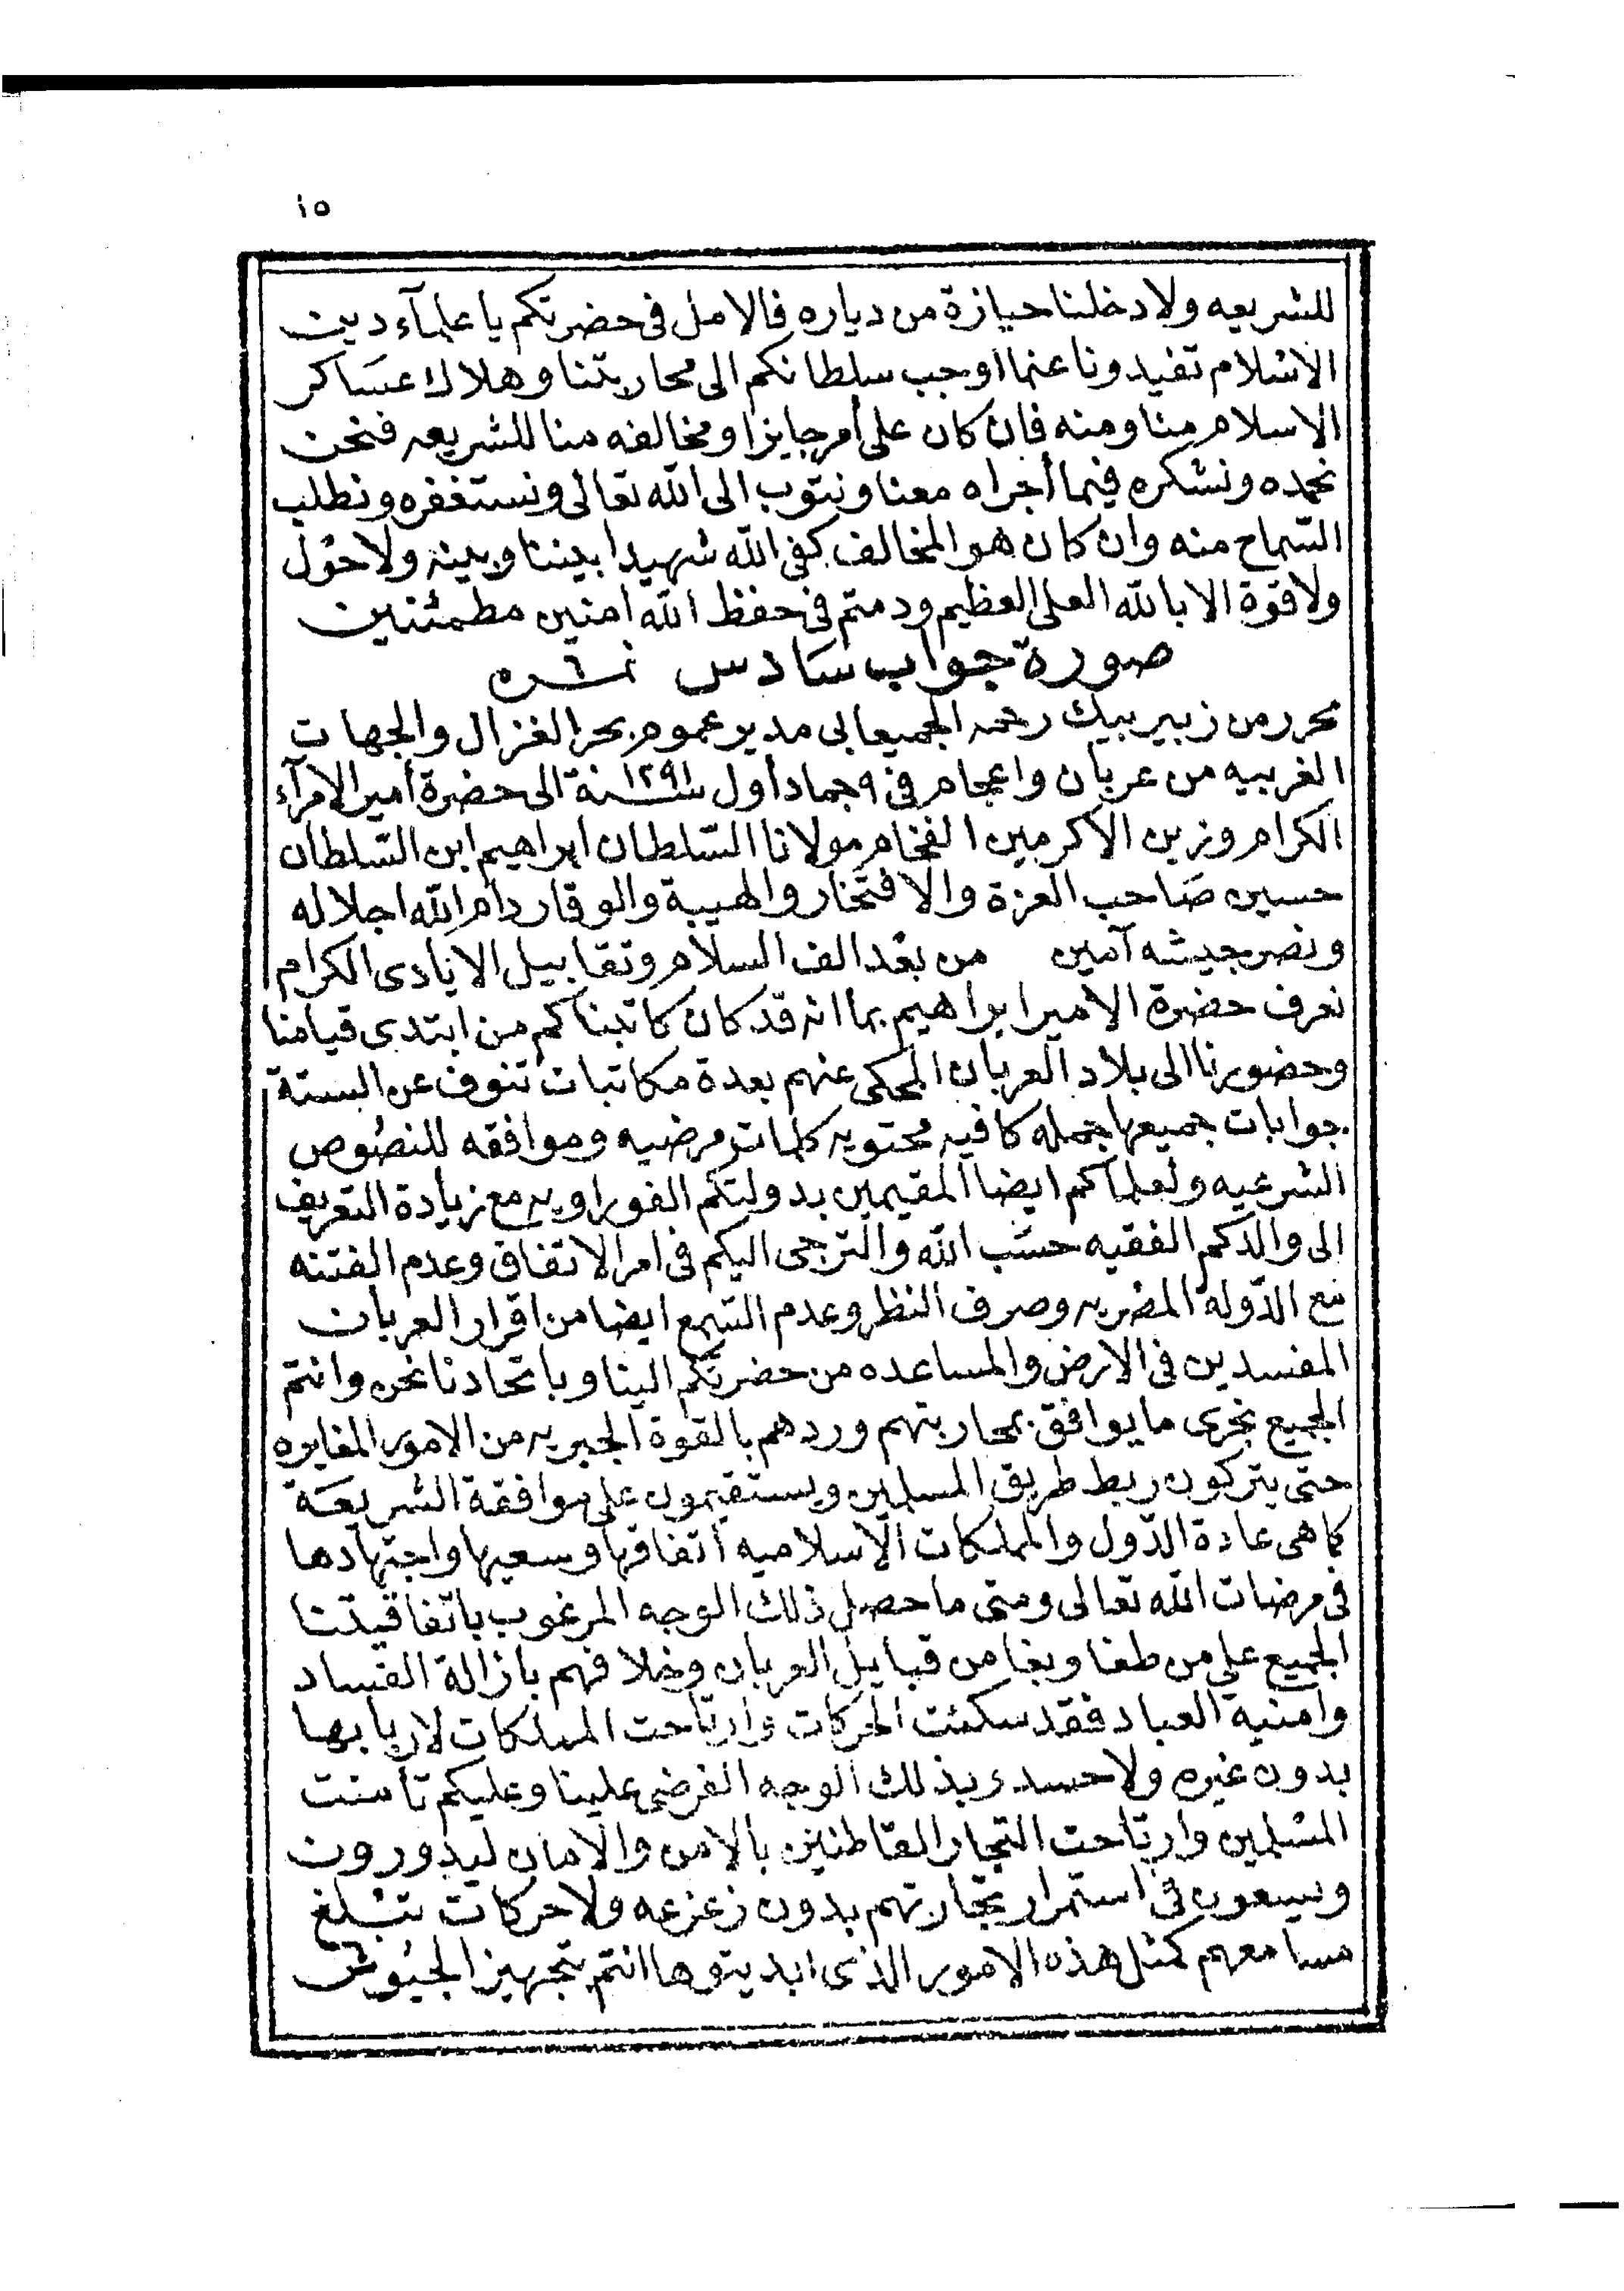 ١٥
للشريعه ولا دخلنا حيازة من دياره فالامل فى حضرتكم يا علمآء دين
الاسلام تفيدونا عنما اوجب سلطانكم الى محاربتنا وهلاك عساكر
الاسلام منا ومنه فان كان على أمر جايز او مخالفه منا للشريعه فنحن
نحمده ونشكره فيما أجراه معنا ونتوب الى الله تعالى ونستغفره ونطلب
السماح منه وان كان هو المخالف كفى الله شهيدا بيننا وبينه ولا حول
ولا قوة الا بالله العلى العظيم ودمتم فى حفظ الله امنين مطمئنين
صورة جواب سادس نمـ٦ـره
محرر من زبير بيك رحمه الجميعابى مدير عموم بحر الغزال والجهات
الغربيه من عربان واعجام فى ٩ جماد أول سنة ١٢٩١ الى حضرة أمير الامرآء
الكرام وزين الاكرمين الفخام مولانا السلطان ابراهيم ابن السلطان
حسين صاحب العزة والافتخار والهيبة والوقار دام الله اجلاله
ونصر جيشه آمين من بعد الف السلام وتقابيل الايادى الكرام
نعرف حضرة الامير ابراهيم بما انه قد كان كاتبناكم من ابتدى قيامنا
وحضورنا الى بلاد العربان المحكى عنهم بعدة مكاتبات تنوف عن الستة
جوابات جميعها جمله كافيه محتويه كلمات مرضيه وموافقه للنصوص
الشرعيه ولعلمآكم ايضا المقيمين بدولتكم الفوراويه مع زيادة التعريف
الى والدكم الفقيه حسب الله والترجى اليكم فى امر الاتفاق وعدم الفتنه
مع الدوله المصريه وصرف النظر وعدم السمع ايضا من اقرار العربان
المفسدين فى الارض والمساعده من حضرتكم الينا وباتحادنا نحن وانتم
الجميع نجرى ما يوافق بمحاربتهم وردهم بالقوة الجبريه من الامور المغايره
حتى يتركون ربط طريق المسلمين ويستقيمون على موافقة الشريعة
كما هى عادة الدول والمملكات الاسلاميه اتفاقها وسعيها واجتهادها
فى مرضات الله تعالى ومتى ما حصل ذلك الوجه المرغوب باتفاقيتنا
الجميع على من طغا وبغا من قبايل العربان وخلافهم بازالة الفساد
وامنية العباد فقد سكنت الحركات وارتاحت المملكات لاربابها
بدون غيره ولا حسد وبذلك الوجه الفرضى علينا وعليكم تأمنت
المسلمين وارتاحت التجار القاطنين بالامن والامان ليدورون
ويسعون فى استمرار تجارتهم بدون زعزعه ولا حركات تبلغ
مسامعهم كمثل هذه الامور الذى ابديتوها انتم بتجهيز الجيوش